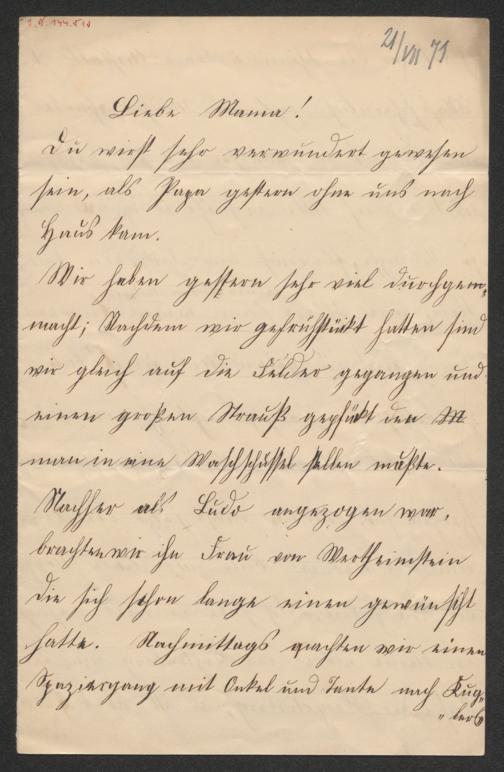 I.N. 144.510
21/VII 71
Liebe Mama!
Du wirst sehr verwundert gewesen
sein, als Papa gestern ohne uns nach
Haus kam.
Wir haben gestern sehr viel durchgem„
macht; Nachdem wir gefrühstückt hatten sind
wir gleich auf die Felder gegangen und
einen großen Strauß gepflückt den M
man in eine Waschschüssel stellen mußte.
Nachher als Ludo angezogen war,
brachten wir ihn Frau von Wertheimstein
die sich schon lange einen gewünscht
hatte. Nachmittags machten wir einen
Spaziergang mit Onkel und Tante nach Kug„
„lers